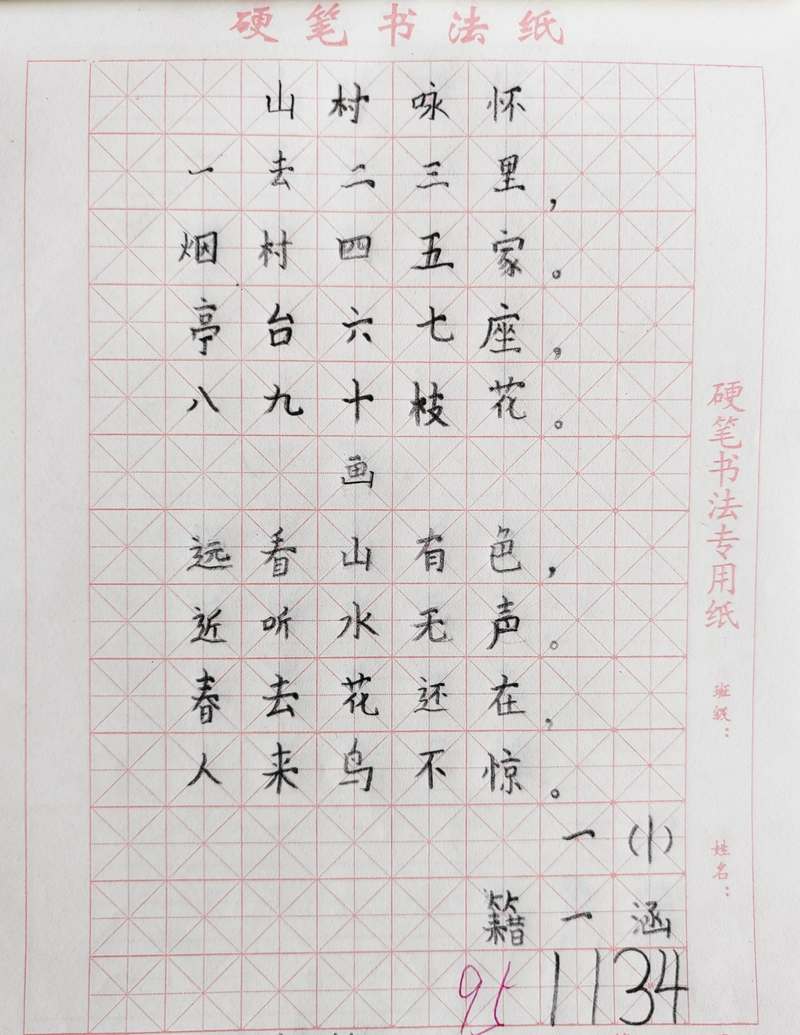 硬笔书法纸
山村咏怀
一去二三里，
烟村四五家。
亭台六七座，
八九十枝花。
画
远看山有色，
近听水无声。
春去花还在，
人来鸟不惊。
一（小）
籍一涵
95 1134
硬笔书法专用纸
班级：
姓名：